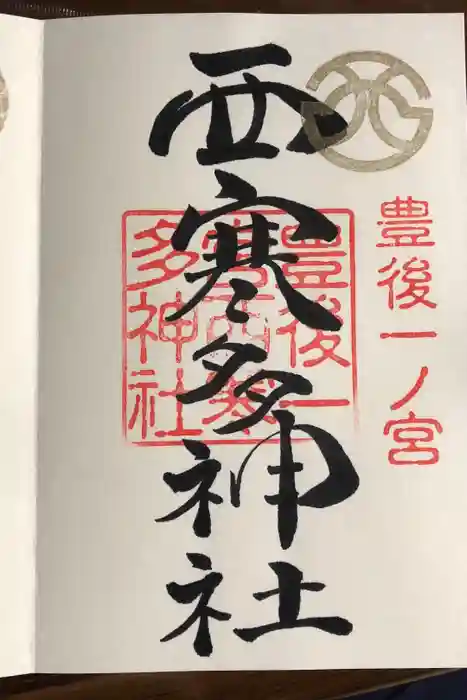 豊後一ノ宮
西寒多神社
豊後一
宮西寒
多神社